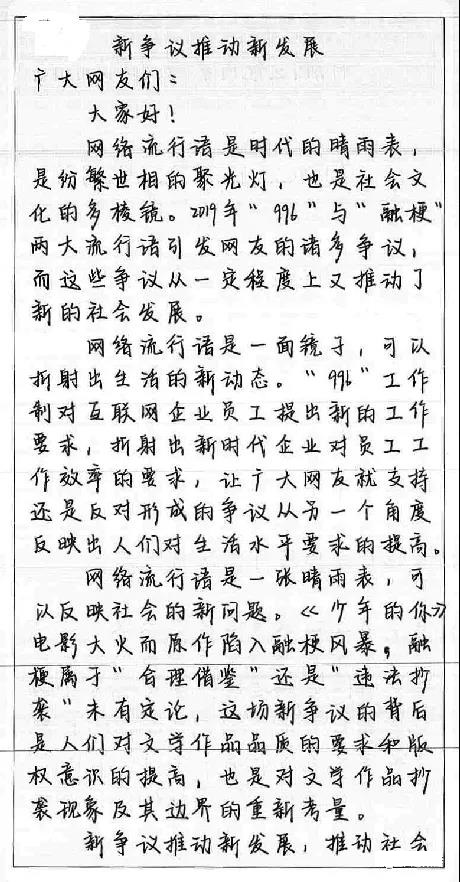 新争议推动新发展
广大网友们：
大家好！
网络流行语是时代的晴雨表，
是纷繁世相的聚光灯，也是社会文
化的多棱镜。2019年“996”与“融梗”
两大流行语引发网友的诸多争议，
而这些争议从一定程度上又推动了
新的社会发展。
网络流行语是一面镜子，可以
折射出生活的新动态。“996”工作
制对互联网企业员工提出新的工作
要求，折射出新时代企业对员工工
作效率的要求，让广大网友就支持
还是反对形成的争议从另一个角度
反映出人们对生活水平要求的提高。
网络流行语是一张晴雨表，可
以反映社会的新问题。《少年的你》
电影大火而原作陷入融梗风暴。融
梗属于“合理借鉴”还是“违法抄
袭”未有定论，这场新争议的背后
是人们对文学作品品质的要求和版
权意识的提高，也是对文学作品抄
袭现象及其边界的重新考量。
新争议推动新发展，推动社会